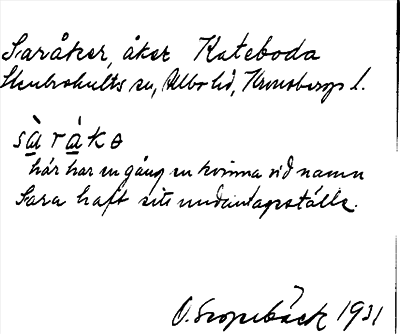 Saråker, åker Kateboda
Stenbrohults sn, Allbo hd, Kronobergs l.
sàràkɘ
här har en gång en kvinna vid namn
Sara haft sitt undantagsställe.
O. 1931